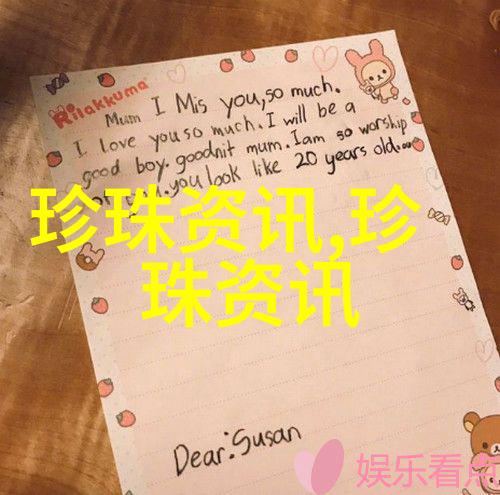 Rilakkuma
Mum I Mis you, so much.
I love you so much. I will be a
good boy. goodnit mum. I am so worship
you look like 20 years old.
珍珠资讯,珍
珠资讯
Dear: Susan
娱乐看点